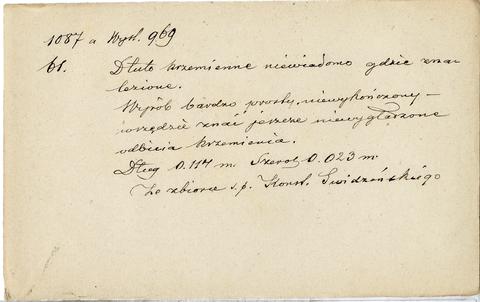 1087 a Wyst. 969
61. Dłuto krzemienne niewiadomo gdzie zna
lezione.
Wyrób bardzo prosty, niewykończony –
wszędzie znać jeszcze niewygładzone
odbicia krzemienia.
Dług 0.114 m. Szerok 0.023 m.
Ze zbioru s.p. Konst. Swidzińskiego